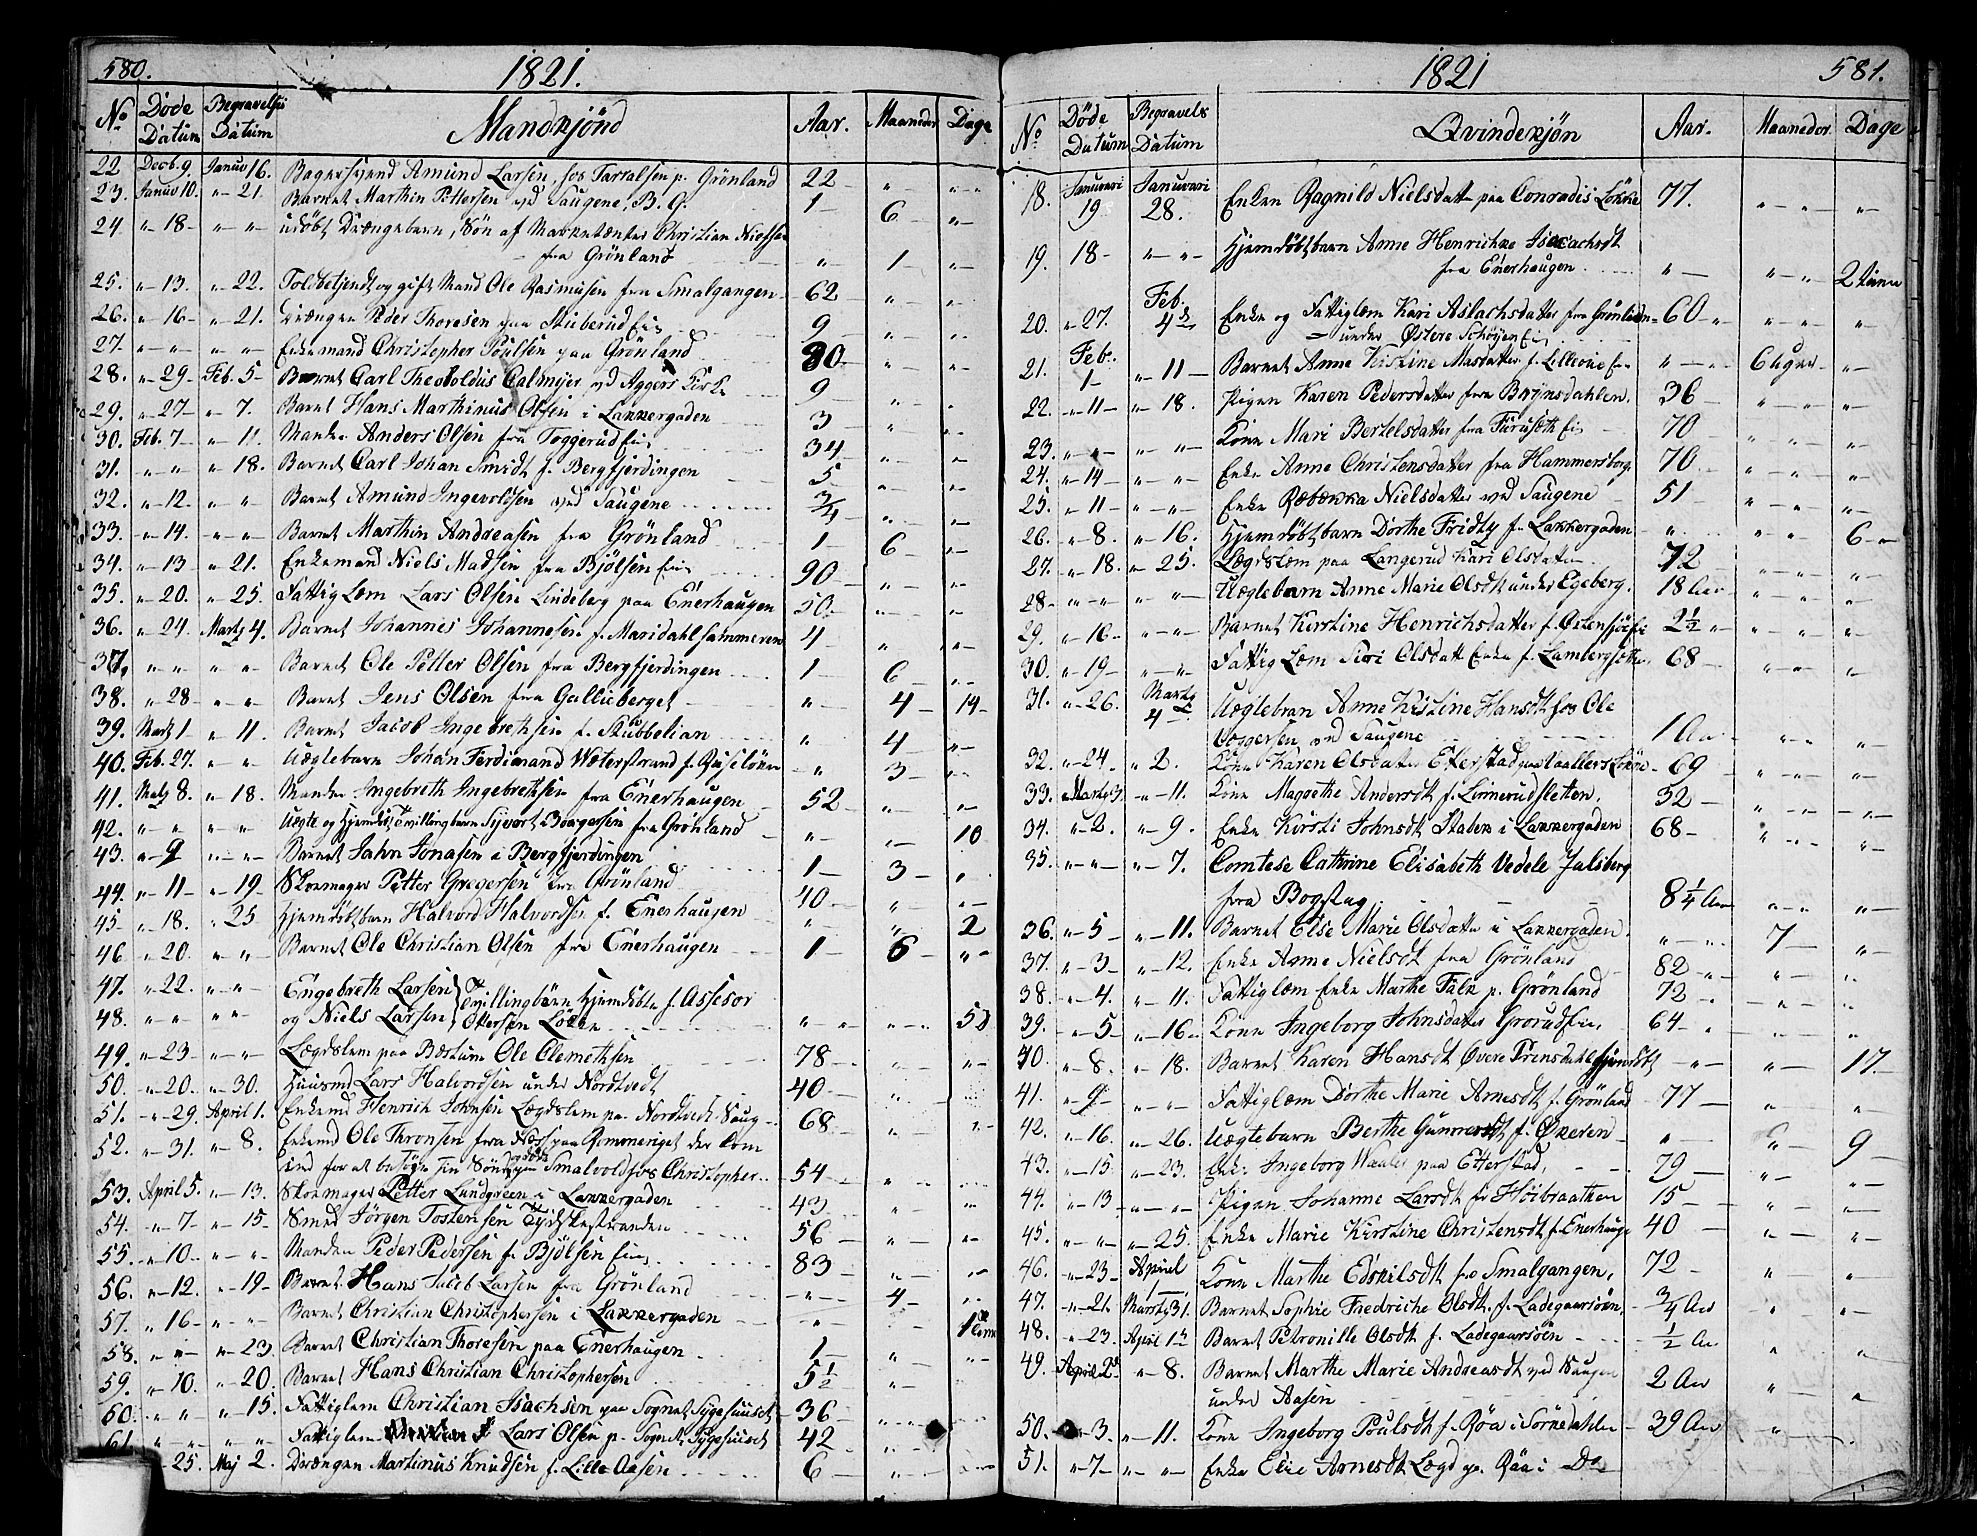 580.
1821.
No Døde Datum Begravelses Datum Mandkjønd Aar. Maaneder Dage
22 Decb. 9. Januv 16. Bagersvend Amund Larsen, hos Tarralsen p. Grönland 22 — " — " —
23. Januv 10. " — 21. Barnet Marthin Pettersen ved Saugene, B. G. 1 — 6 — " —
24 " — 18 — " — " — udöbt Drængebarn, Søn af Marketænter Christian Nielssen
— fra Grönland " — 1 — " —
25. " — 13. " — 22. Toldbetjendt og gift Mand Ole Rasmusen fra Smalgangen — 62 — " — " —
26. " — 16 — " — 21. Drængen Peder Thoresen paa Stuberud Eie 9 — " — " —
27. " — " — " — " — Enkemand Christopher Poulsen paa Grönland 80 — " — " —
28. " — 29 — Feb. 5 — Barnet Carl Theoboldus Calmeyer ved Aggers Kirke 9 — " — " —
29. " — 27 — " — 7. Barnet Hans Marthinus Olsen i Lakkergaden 3 — " — " —
30. Feb. 7 — " — 11. Manden Anders Olsen fra Toggerud Eie 34 — " — " —
31. " — " — " — 18. Barnet Carl Johan Smidt f. Bergfjerdingen 5 — " — " —
32. " — 12. " — " — Barnet Amund Ingevoldsen ved Saugene 3/4 — " — " —
33. " — 14. " — " — Barnet Marthin Andreasen fra Grönland 1 — 6 — " —
34. " — 13 " — 21. Enkemand Niels Madsen fra Bjölsen Eie 90 — " — " —
35. " — 20. " — 25. Fattig Lem Lars Olsen Lindeberg paa Enerhaugen 50 — " — " —
36. " — 24. Marty 4. Barnet Johannes Johannesen f. Maridahlshammeren 4 — " — " —
37. " — " — " — " — Barnet Ole Petter Olsen fra Bergfjerdingen 1 — 6 — " —
38. " — 28 — " — " — Barnet Jens Olsen fra Gallieberget " — 4 — 14 —
39. Marty 1 " — 11. Barnet Jacob Ingebrethsen f. Stubbelian " 4 — " —
40. Feb. 27. " — " — Uægtebarn Johan Ferdinand Weterstrand f. Ruselökken " 3 — " —
41. Marty 8. " — 18. Manden Ingebreth Ingebrethsen fra Enerhaugen 52 — " — " —
42. " — " — " — " — Uægte og Hjemdöbt Tvillingbarn Syvert Borgersen fra Grönland " — " — 10
43. " — 9 " — " — Barnet Jahn Jonasen i Bergfjerdingen 1 — 3 — "
44. " — 11 — " — 19 — Skomager Petter Gregersen fra Grönland 40 — " — " —
45 " — 18. " 25 Hjemdöbtbarn Halvord Halvordsen f. Enerhaugen " — " — 2
46 " — 20. " — " — Barnet Ole Christian Olsen fra Enerhaugen 1 — 6 " —
47. " — 22. " — " — Engebreth Larsen } Tvillingbörn Hjemdöbte f. Assesor
48. " — " — " — " — og Niels Larsen } Ottersen Løkke " — " — 5
49. " — 23 — " — " — Lægdslem paa Bæstum Ole Clemetsen 78 — " — " —
50. " — 20. " — 30. Huusmd Lars Halvordsen under Nordtvedt 40 — "
51. " — 29. April 1. Enkemd Henrich Johnsen Lægdslem paa Nordtvedt Saug — 68 — " — " —
52. " — 31. " — 8. Enkemd Ole Thronsen fra Næss paa Romeriget der kom
ind for at besøge sin Søn paa Smalvold hos Christopher 54 — " — " —
53. April 5. " — 13. Skomager Petter Lundgreen i Lakkergaden 43 — " — " —
54. " — 7 — " — 15 — Smed Jörgen Tostensen Tydskestranden 56 — " — " —
55. " — 10 — " — " — Manden Peder Pedersen f. Bjölsen Eie 83 — " — " —
56. " — 12. " — 19 — Barnet Hans Jacob Larsen fra Grönland " — 4 — " —
57. " 16 — " — " — Barnet Christian Christophersen i Lakkergaden " — " — 1 Time
58. " — " — " — 23. Barnet Christian Thoresen paa Enerhaugen 1 — " — " —
59. " — 10. " 20. Barnet Hans Christian Christophersen 5½ — " —
60. " — " — " — 15. Fattiglem Christian Isachsen paa Sognets Sygehuuset 36 — " — " —
61. " — " — " — " — Fattiglem Lars Olsen p. Sognets Sygehuuset 42 — " — " —
25. Maj 2. Drængen Martinus Knudsen f. Lille Aasen 6 — " — " —
1821
581.
No Døde Datum Begravels Datum Qvindekjøn Aar. Maaneder Dage
18. Januvari 19 Januvari 28. Enken Ragnild Nielsdatter paa Conradis Løkke 77. " — " — " —
19. 18 — " — " — Hjemdöbtbarn Anne Henrikke Isaachsdt
fra Enerhaugen " — " — " 2 timer
20. " 27. Feb. 4de Enke og Fattiglem Kari Aslachsdatter fra Grönlien — 60 — " — " — " —
— under Østere Schöyen Eie
21. Feb. 1 — " — 11 — Barnet Anne Kirstine Masdatter f. Lillevie Eie " — " — 6 Uger — " —
22. " — 11 — " — 18. Pigen Karen Pedersdatter fra Brynsdahlen. 36 — " — " — " —
23. " — " — " — " — Kone Mari Bertelsdatter fra Furuseth Eie 70 — " — " — " —
24. " — 14 — " — " — Enke Anne Christensdatter fra Hammersborg 70 — " — " — " —
25. " — 11 — " — " — Enke Rebekka Nielsdatter ved Saugene 51 — " — " — " —
26. " — 8. " — 16. Hjemdöbtbarn Dorthe Fridly f. Lakkergaden " — " — " — 6 —
27. " — 18. " — 25. Lægdslem paa Langerud Kari Olsdatter 72 " — " — " —
28 — " — " — " — " — Uægtebarn Anne Marie Olsdt under Egeberg. 18 Aar " — " — " —
29. " — 16 — " — " — Barnet Kirstine Henrichsdatter f. Østensjöe Eie 2½ " — " — " — " —
30. " — 19 — " — " — Fattig Lem Siri Olsdatt Enke f. Lambergsæther 68 — " — " — " —
31. " — 26. Marty 4 — Uægtebarn Anne Kirstine Hansdt hos Ole
Seggersen ved Saugene 1 Aar — " — " — " —
32. " — 24 — " 2. Kone Karen Olsdatter Etterstad paa Vaallers Løkke — 69 — " — " — " —
33. Marty 3. " — 11. Kone Magrethe Andersdt f. Linnerudsletten. 32 — " — " — " —
34. " — 2. " — 9. Enke Kirsti Johnsdt Staben i Lakkergaden 68 — " — " — " —
35. " — " — " — 7. Comtese Cathrine Elisabeth Vedele Jalsberg
fra Bogstag 8¼ Aar " — " — " —
36. " — 5 — " — 11. Barnet Else Marie Olsdatter i Lakkergaden. " — " 7 — " —
37. " — 3 — " — 12. Enke Anne Nielsdt fra Grönland 82 — " — " — "
38. " — 4. " — 11. Fattiglem Enke Marthe Falk p. Grönland 72 — " — " — "
39. " — 5 — " — 16 — Kone Ingeborg Johnsdatter Grorud Eie, 64 — " — " — "
40. " — 8. " — 18. Barnet Karen Hansdt Øvere Prinsdahl Hjemdöbt " — " — 17. —
41. " — 9 — " — " — Fattiglem Dorthe Marie Arnesdt f. Grönland — 77 — " — " —
42. " — 16. " — 26. Uægtebarn Berthe Gunnersdt f. Økeren — " — " — 9 —
43. " — 15 " — 23. Enke Ingeborg Waaler paa Etterstad, 79 — " — " —
44. " — 13 — " — " — Pigen Johanne Larsdt fra Höibraathen 15 — " — " —
45. " — " — " — 25. Enke Marie Kirstine Christensdt f. Enerhauge 40 — " — " —
46. " — 23 — April 1 — Kone Marthe Edskilsdt fra Smalgangen, 72 — " — " —
47. " — 21. Marty 31. Barnet Sophie Fredriche Olsdt. f. Ladegaarsöen, — 3/4 Aar " "
48. " — 23. April 1te Barnet Petronille Olsdt f. Ladegaarsöen — 1/2 Aar " "
49. April 2d " — 8. Barnet Marthe Marie Andreasdt ved Saugen
under Aasen 2 Aar " — "
50. " — 3. " — 11. Kone Ingeborg Poulsdt f. Røa i Sørkedahlen — 39 Aar " — "
51. " — 7 — " — " — Enke Elie Arnesdt Lægd p. Røa i Do